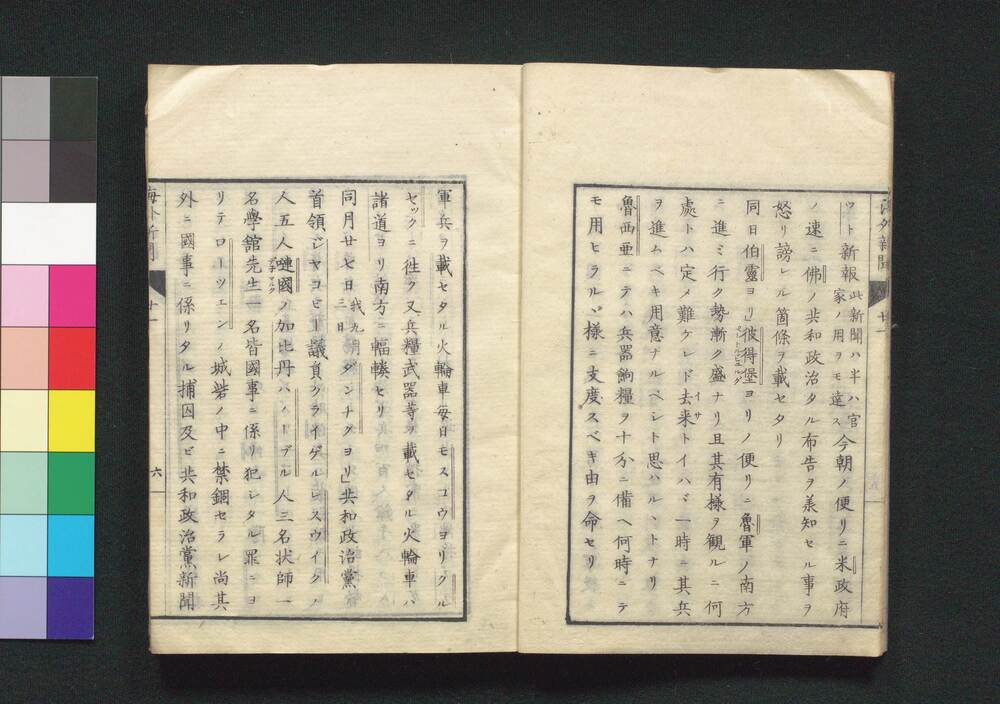 ウト新報此新聞ハ半ハ官家ノ用ヲモ達ス今朝ノ便リニ米政府
ノ速ニ佛ノ共和政治タル布告ヲ羨知セル事ヲ
怒リ謗レル箇條ヲ載セタリ
同日伯靈ヨリ」彼得堡ヨリノ便リニ魯軍ノ南方
ニ進ミ行ク勢漸ク盛ナリ且其有様ヲ観ルニ何
處トハ定メ難ケレド去来トイハヾ一時ニ其兵
ヲ進ムベキ用意ナルベシト思ハルヽトナリ
魯西亜ニテハ兵器餉糧ヲ十分ニ備ヘ何時ニテ
モ用ヒラルヽ様ニ支度スベキ由ヲ命セリ
軍兵ヲ載セタル火輪車毎日モスコウヨリクル
セックニ徃ク又兵糧武器等ヲ載セタル火輪車ハ
諸道ヨリ南方ニ輻輳セリ
同月廿七日我九月三日ダンチクヨリ」共和政治黨ノ
首領ジヤコビー議員クライゲルレスウイクノ
人五人嗹國ノ加比丹ハノーブル人三名状師一
名學館先生一名皆國事ニ係リ犯シタル罪ニヨ
リテローツェンノ城砦ノ中ニ禁錮セラレ尚其
外ニ國事ニ係リタル捕囚及ビ共和政治黨新聞
海外新聞
六